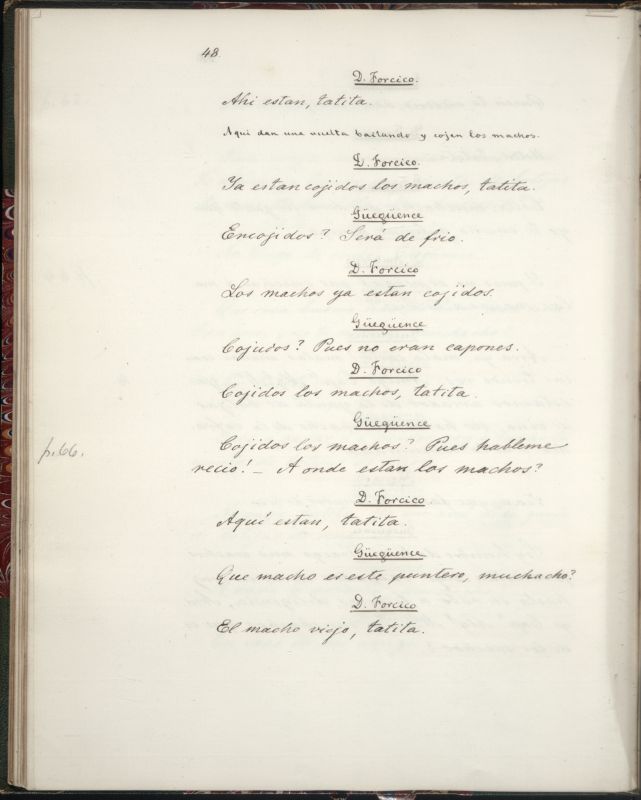 48
D. Forcico.
Ahi estan, tatita.
Aqui dan una vuelta bailando y cojen los machos.
D. Forcico.
Ya estan cojidos los machos, tatita.
Güegüence
Encojidos? Será de frio.
D. Forcico
Los machos ya estan cojidos.
Güegüence
Cojudos? Pues no eran capones.
D. Forcico
Cojidos los machos, tatita.
Güegüence
Cojidos los machos? Pues hableme
p. 66.
recio! – A onde estan los machos?
D. Forcico
Aquí estan, tatita.
Güegüence
Que macho es este puntero, muchacho?
D. Forcico
El macho viejo, tatita.